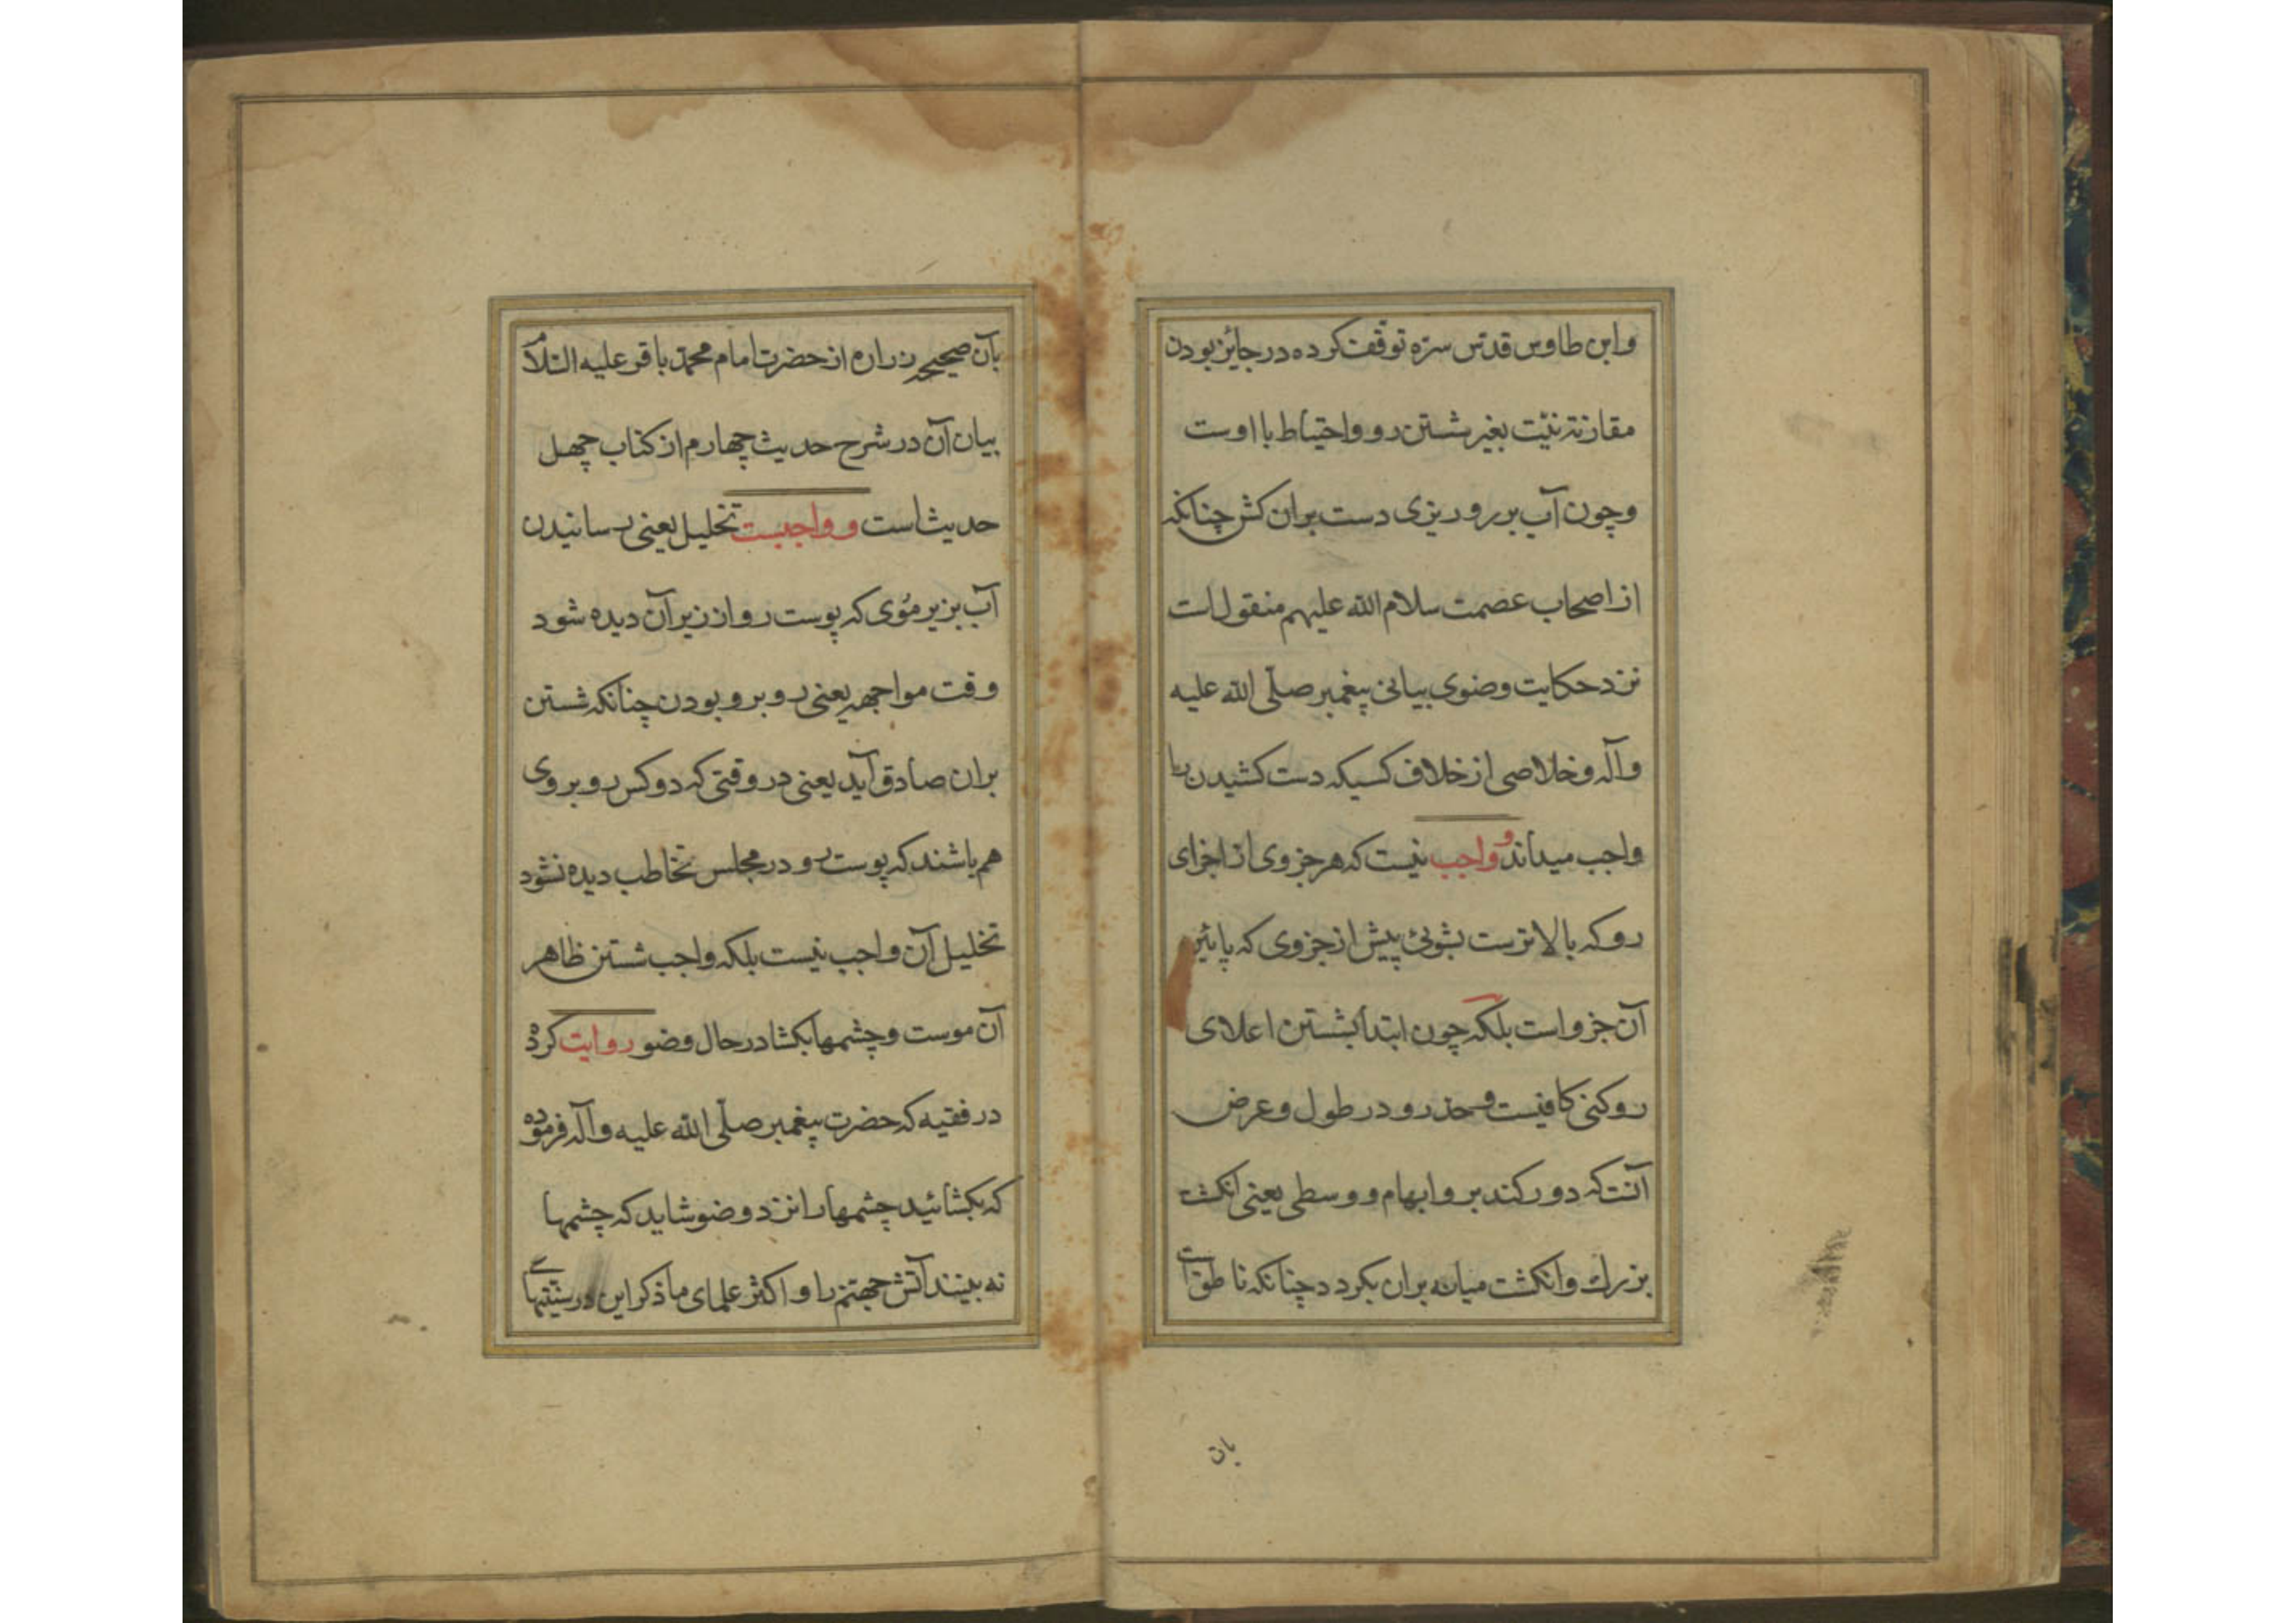 وابن طاوس قدّس سرّه توقّف کرده در جایز بودن
مقارنهٔ نیّت بغیر شستن رو واحتیاط با اوست
وچون آب بر رو ریزی دست بران کش چنانکه
از اصحاب عصمت سلام الله علیهم منقول است
نزد حکایت وضوی بیانی پیغمبر صلّی الله علیه
وآله وخلاصی از خلاف کسیکه دست کشیدن را
واجب میداند و واجب نیست که هر جزوی از اجزای
رو که بالاترست بشوئی پیش از جزوی که پائین
آن جزو است بلکه چون ابتدا بشستن اعلای
رو کنی کافیست وحد رو در طول وعرض
آنست که دور کند برو ابهام و وسطی یعنی انکشت
بزرك وانکشت میانه بران بکردد چنانکه ناطق است
بان
بآن صحیحه زراره از حضرت امام محمّد باقر علیه السّلام
بیان آن در شرح حدیث چهارم از کتاب چهل
حدیث است و واجبست تخلیل یعنی رسانیدن
آب بزیر مُوی که پوست رو از زیر آن دیده شود
وقت مواجهه یعنی رو برو بودن چنانکه شستن
بران صادق آید یعنی در وقتی که دو کس رو بروی
هم باشند که پوست رو در مجلس تخاطب دیده نشود
تخلیل آن واجب نیست بلکه واجب شستن ظاهر
آن موست وچشمها بکشا در حال وضو روایت کرده
در فقیه که حضرت پیغمبر صلّی الله علیه وآله فرموده
که بکشائید چشمها را نزد وضو شاید که چشمها
نه بینند آتش جهنّم را و اکثر علمای ما ذکر این در سنّتیهای